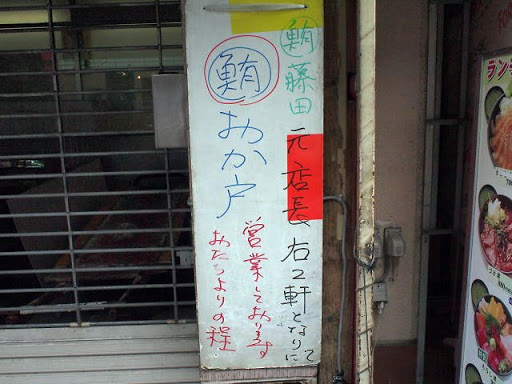 鮪藤田
元店長右2軒となりにて
鮪
おか戸
営業しております
おたちよりの程
ラン